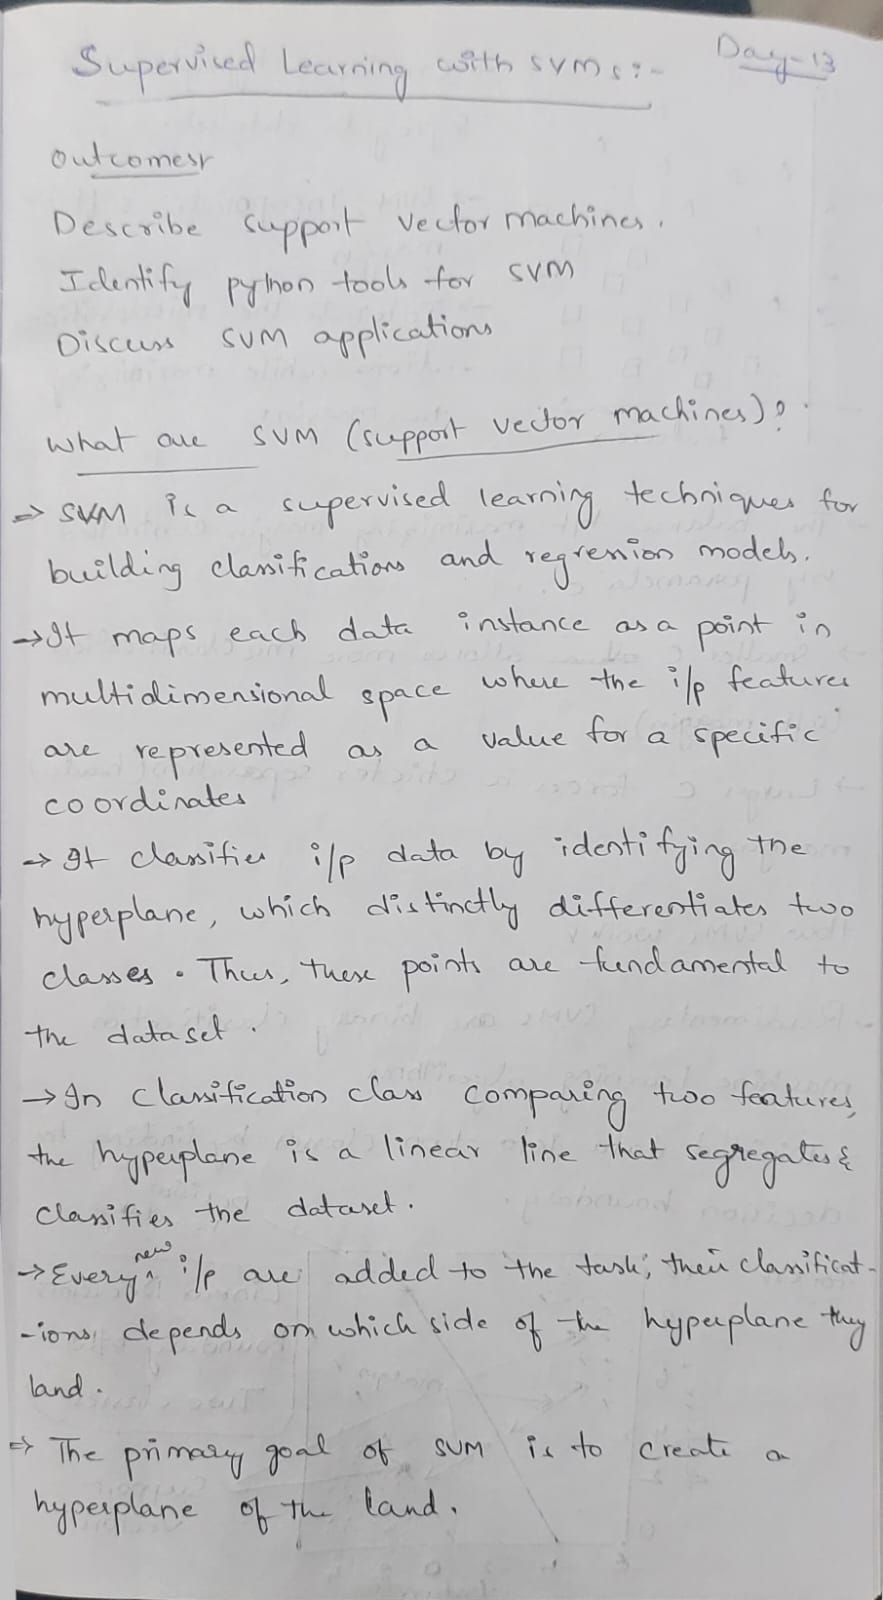 Supervised Learning with SVMs:- Day-13
Outcomes:
Describe support vector machines.
Identify python tools for SVM
Discuss SVM applications
What are SVM (support vector machines)?
⇒ SVM is a supervised learning techniques for
building classifications and regression models.
→It maps each data instance as a point in
multidimensional space where the i/p features
are represented as a value for a specific
coordinates
→ It classifies i/p data by identifying the
hyperplane, which distinctly differentiates two
classes. Thus, these points are fundamental to
the dataset.
→In classification class comparing two features,
the hyperplane is a linear line that segregates &
classifies the dataset.
→Every new i/p are added to the task, their classificat-
-ions depends on which side of the hyperplane they
land.
⇒ The primary goal of SVM is to create a
hyperplane of the land.